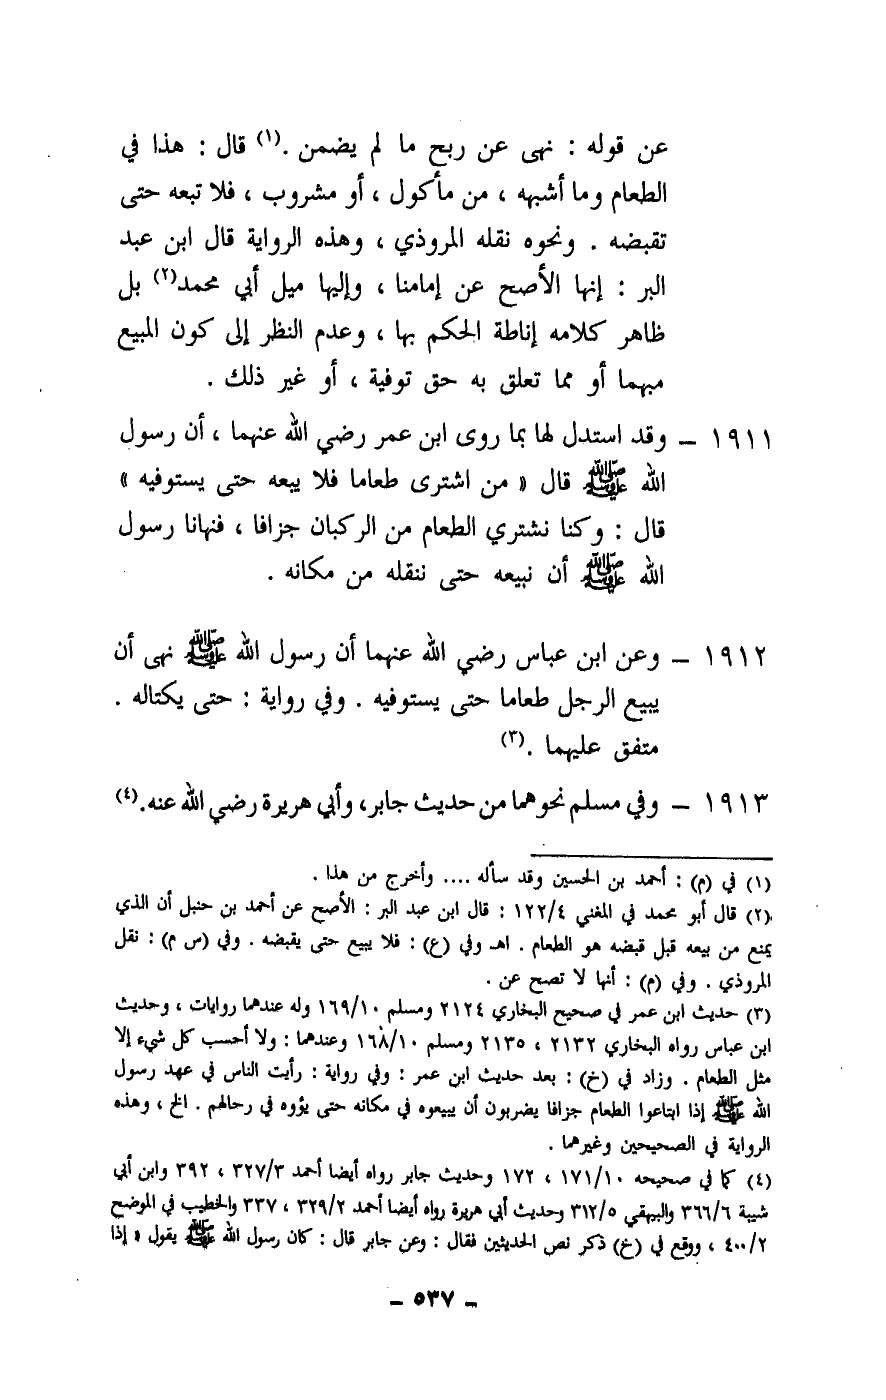 عن قوله : نهى عن ربح ما لم يضمن .(١) قال : هذا في
الطعام وما أشبهه ، من مأكول ، أو مشروب ، فلا تبعه حتى
تقبضه . ونحوه نقله المروذي ، وهذه الرواية قال ابن عبد
البر : إنها الأصح عن إمامنا ، وإليها ميل أبي محمد(٢) بل
ظاهر كلامه إناطة الحكم بها ، وعدم النظر إلى كون المبيع
مبهما أو مما تعلق به حق توفية ، أو غير ذلك .
١٩١١ – وقد استدل لها بما روى ابن عمر رضي الله عنهما ، أن رسول
الله ﷺ قال « من اشترى طعاما فلا يبعه حتى يستوفيه »
قال : وكنا نشتري الطعام من الركبان جزافا ، فنهانا رسول
الله ﷺ أن نبيعه حتى ننقله من مكانه .
١٩١٢ – وعن ابن عباس رضي الله عنهما أن رسول الله ﷺ نهى أن
يبيع الرجل طعاما حتى يستوفيه . وفي رواية : حتى يكتاله .
متفق عليهما .(٣)
١٩١٣ – وفي مسلم نحوهما من حديث جابر، وأبي هريرة رضي الله عنه.(٤)
(١) في (م) : أحمد بن الحسين وقد سأله .... وأخرج من هذا .
(٢) قال أبو محمد في المغني ١٢٢/٤ : قال ابن عبد البر : الأصح عن أحمد بن حنبل أن الذي
يمنع من بيعه قبل قبضه هو الطعام . اهـ وفي (ع) : فلا يبيع حتى يقبضه . وفي (س م) : نقل
المروذي . وفي (م) : أنها لا تصح عن .
(٣) حديث ابن عمر في صحيح البخاري ٢١٢٤ ومسلم ١٦٩/١٠ وله عندهما روايات ، وحديث
ابن عباس رواه البخاري ٢١٣٢ ، ٢١٣٥ ومسلم ١٦٨/١٠ وعندهما : ولا أحسب كل شيء إلا
مثل الطعام . وزاد في (خ) : بعد حديث ابن عمر : وفي رواية : رأيت الناس في عهد رسول
الله ﷺ إذا ابتاعوا الطعام جزافا يضربون أن يبيعوه في مكانه حتى يؤوه في رحالهم . الخ ، وهذه
الرواية في الصحيحين وغيرهما .
(٤) كما في صحيحه ١٧١/١٠ ، ١٧٢ وحديث جابر رواه أيضا أحمد ٣٢٧/٣ ، ٣٩٢ وابن أبي
شيبة ٣٦٦/٦ والبيهقي ٣١٢/٥ وحديث أبي هريرة رواه أيضا أحمد ٣٢٩/٢ ، ٣٣٧ والخطيب في الموضح
٤٠٠/٢ ، ووقع في (خ) ذكر نص الحديثين فقال : وعن جابر قال : كان رسول الله ﷺ يقول « إذا
– ٥٣٧ –